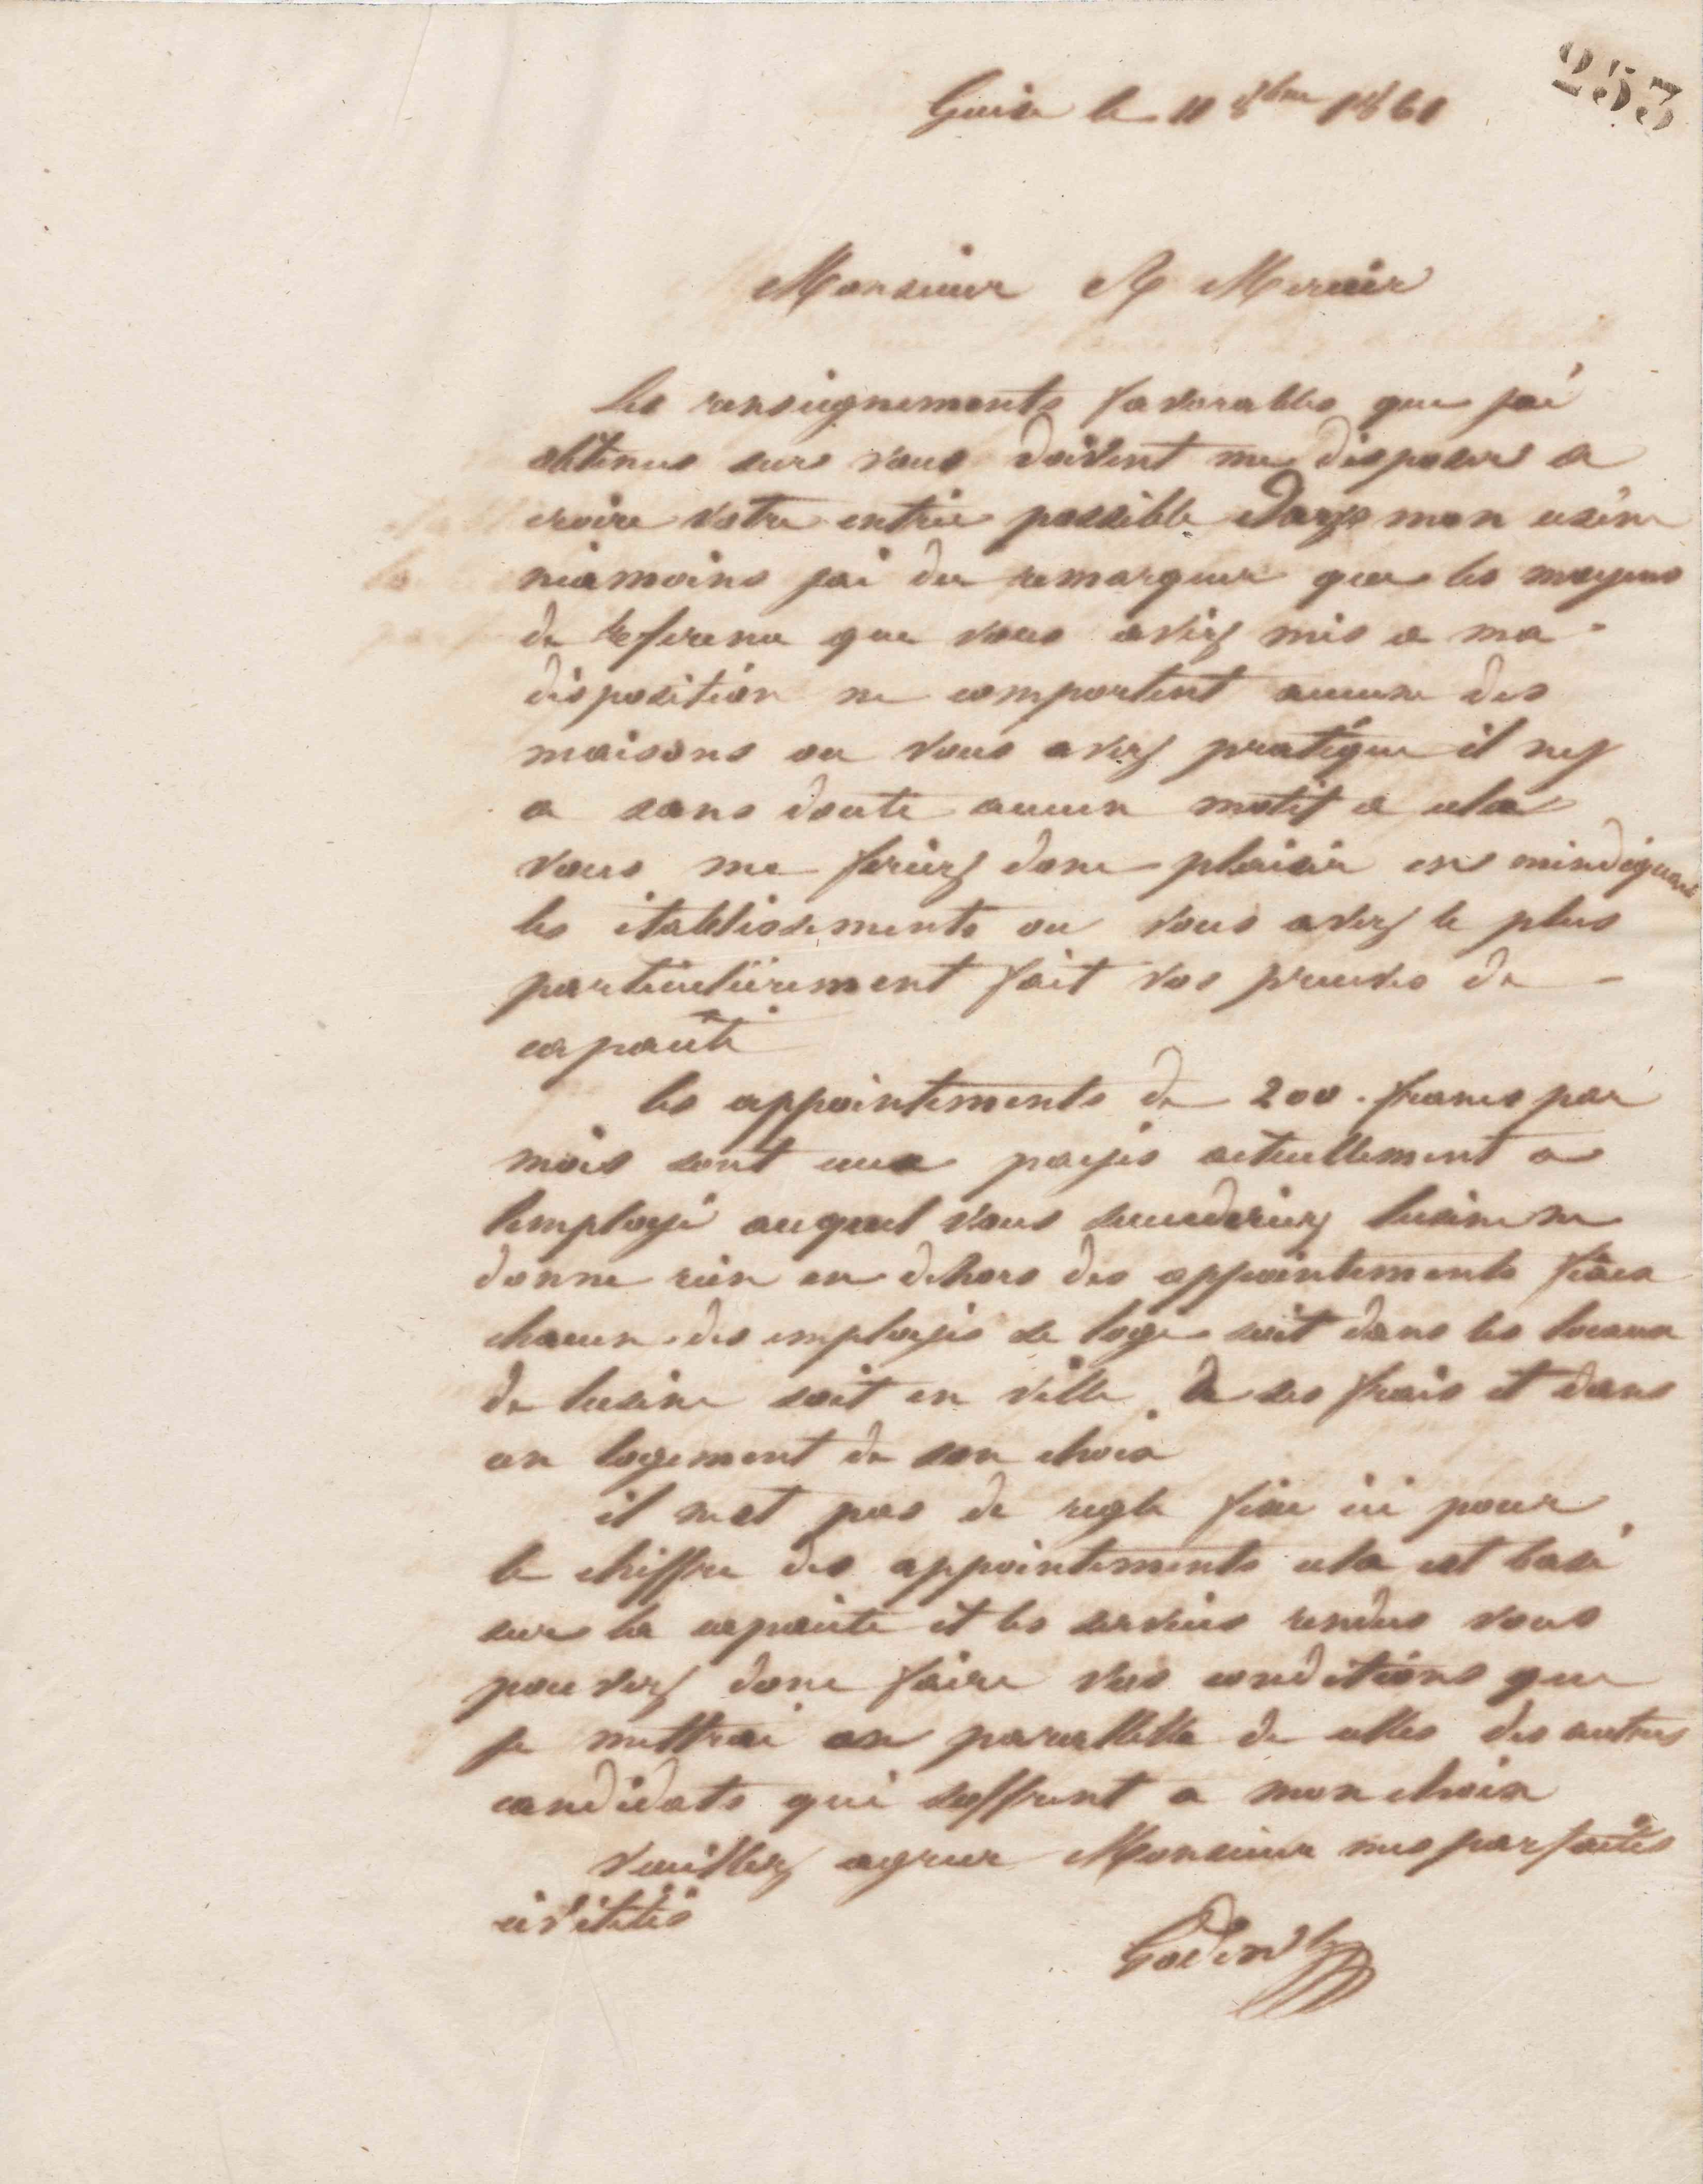 253
Guise le 11 8bre 1861
Monsieur A Mercier
Les renseignements favorables que jai
obtenus sur vous doivent me disposer a
croire votre entrée possible dans mon usine
néamoins jai du remarquer que les moyens
de reference que vous aviez mis a ma
disposition ne comportent aucune des
maisons ou vous avez pratiqué il ny
a sans doute aucun motif a cela
vous me feriez donc plaisir en mindiquant
les établissements ou vous avez le plus
particulièrement fait vos preuves de
capacité
les appointements de 200 . francs par
mois sont ceux payés actuellement a
lemployé auquel vous succederiez lusine ne
donne rien en dehors des appointements fixes
chacun des employés se loge soit dans les locaux
de lusine soit en ville a ses frais et dans
un logement de son choix
il nest pas de regle fixe ici pour
le chiffre des appointements cela est basé
sur la capacité et les services rendus vous
pouvez donc faire vos conditions que
je mettrai en parallelle de celles des autres
candidats qui soffrent a mon choix
Veuillez agreer Monsieur mes parfaites
civilités
Godin